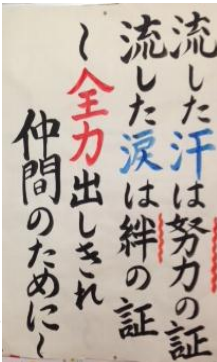 流した汗は努力の証
流した涙は絆の証
～全力出しきれ
仲間のために～